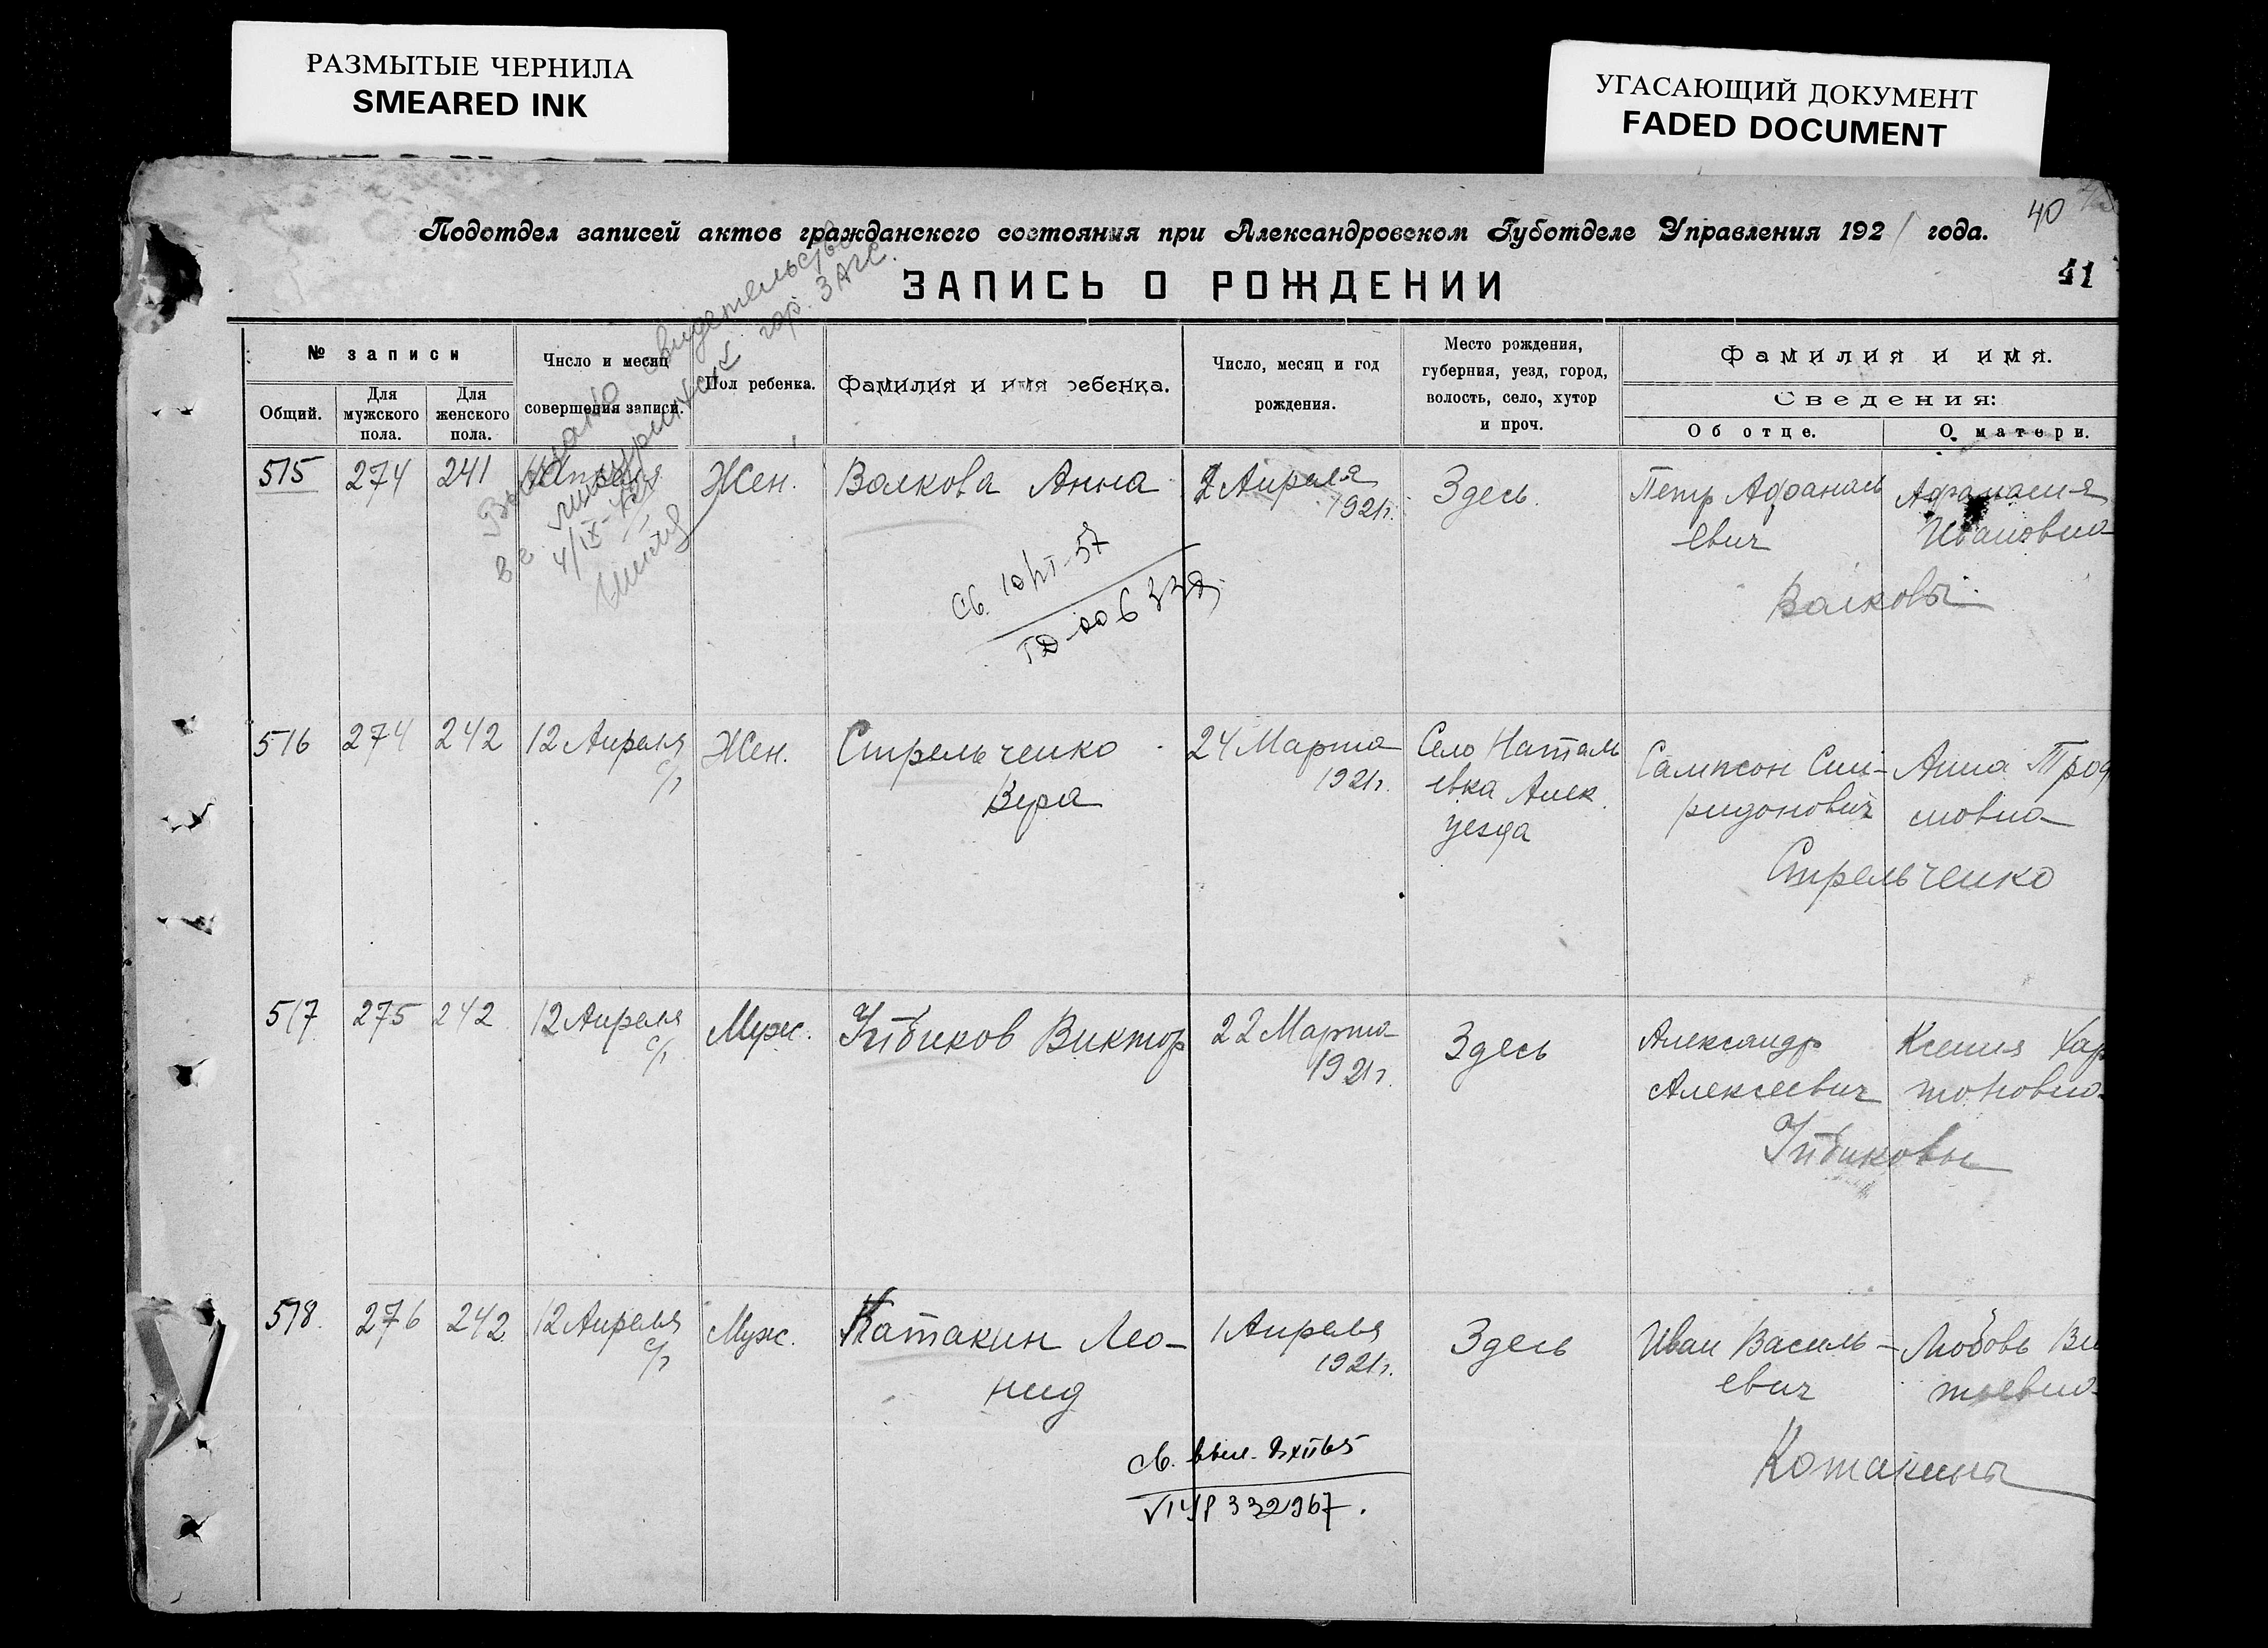 РАЗМЫТЫЕ ЧЕРНИЛА
SMEARED INK
УГАСАЮЩИЙ ДОКУМЕНТ
FADED DOCUMENT
40
Подотдел записей актов гражданского состояния при Александровском Губотделе Управления 1921 года.
51
ЗАПИСЬ О РОЖДЕНИИ
№ записи
Общий.
Для
мужского
пола.
Для
женского
пола.
Число и месяц
совершения записи.
Пол ребенка.
Фамилия и имя ребенка.
Число, месяц и год
рождения.
Место рождения,
губерния, уезд, город,
волость, село, хутор
и проч.
Фамилия и имя.
Сведения:
Об отце.
О матери.
Выдано свидетельство
гор. ЗАГС.
4/IX-
515
274
241
Апреля
Жен.
Волкова Анна
2 Апреля
1921г.
Здесь.
Петр Афанась
евич
Афанасия
Ивановна
Волковы
Св. 10/VI-57
006332
516
274
242
12 Апреля
с/г
Жен.
Стрельченко
Вера
24 Марта
1921г.
Село Наталь
евка Алек.
уезда
Сампсон Спи-
ридонович
Анна Троф
мовна
Стрельченко
517
275
242
12 Апреля
с/г
Муж.
Виктор
22 Марта
1921г.
Здесь
Александр
Алексеевич
Ксения Хар
тоновна
518.
276
242
12 Апреля
с/г
Муж.
Катакин Лео-
нид
1 Апреля
1921г.
Здесь
Иван Василь-
евич
Любовь
Котакины
св. выд.
332967.